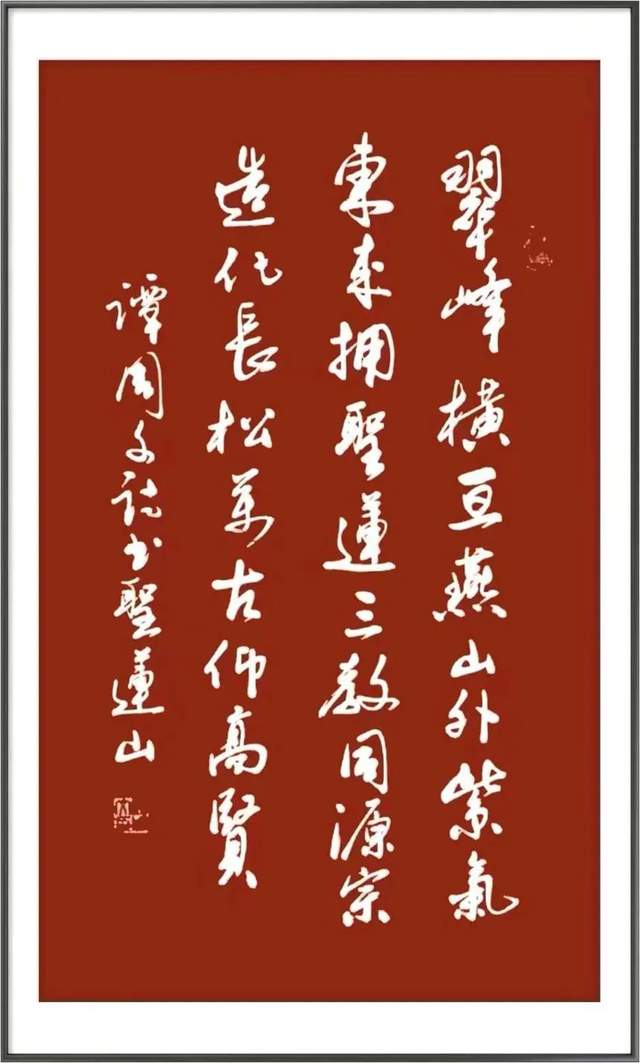 翠峰橫亘燕山外紫氣
東來擁聖蓮三教同源宗
造化長松萬古仰高賢
譚周文詩書聖蓮山